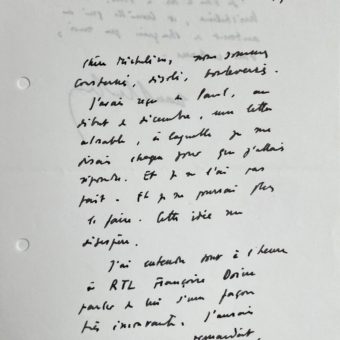 chère Micheline, nous sommes
consternés, désolés, bouleversés.
J'avais reçu de Paul, au
début de décembre, une lettre
adorable, à laquelle je me
disais chaque jour que j'allais
répondre. Et je ne l'ai pas
fait. Et je ne pourrai plus
le faire. Cette idée me
désespère.
J'ai entendu tout à l'heure
à RTL Françoise Dorin
parler de lui d'une façon
très émouvante. J'aurais